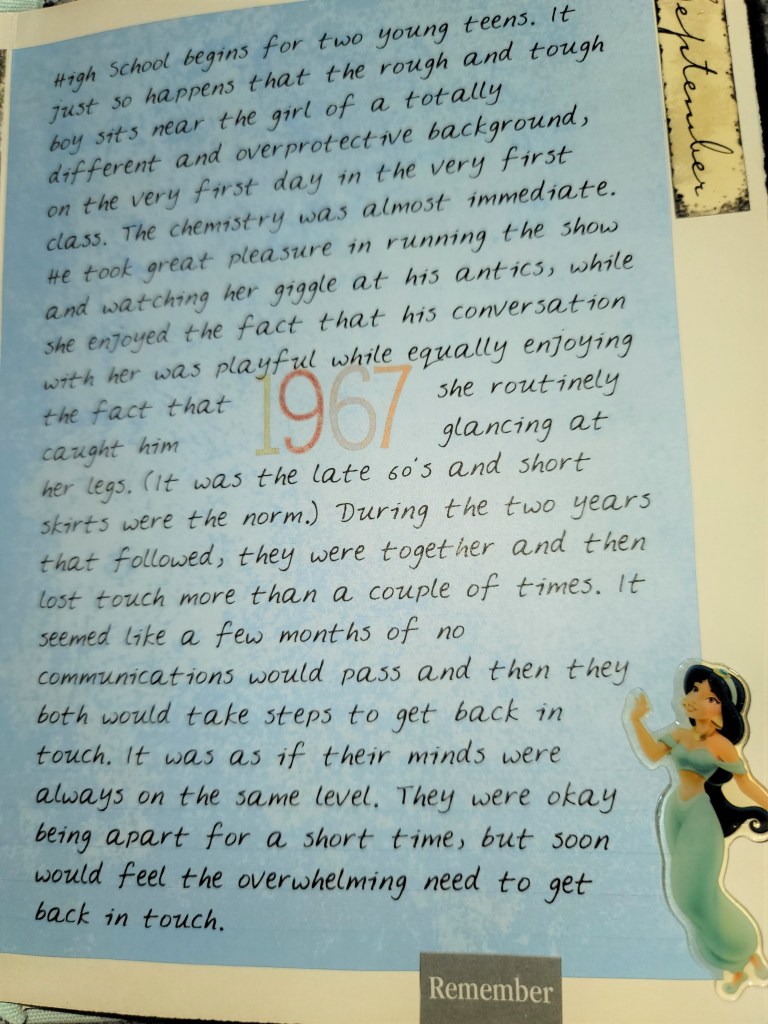 September
High School begins for two young teens. It
just so happens that the rough and tough
boy sits near the girl of a totally
different and overprotective background,
on the very first day in the very first
class. The chemistry was almost immediate.
He took great pleasure in running the show
and watching her giggle at his antics, while
she enjoyed the fact that his conversation
with her was playful while equally enjoying
the fact that she routinely
caught him glancing at
1967
her legs. (It was the late 60's and short
skirts were the norm.) During the two years
that followed, they were together and then
lost touch more than a couple of times. It
seemed like a few months of no
communications would pass and then they
both would take steps to get back in
touch. It was as if their minds were
always on the same level. They were okay
being apart for a short time, but soon
would feel the overwhelming need to get
back in touch.
Remember